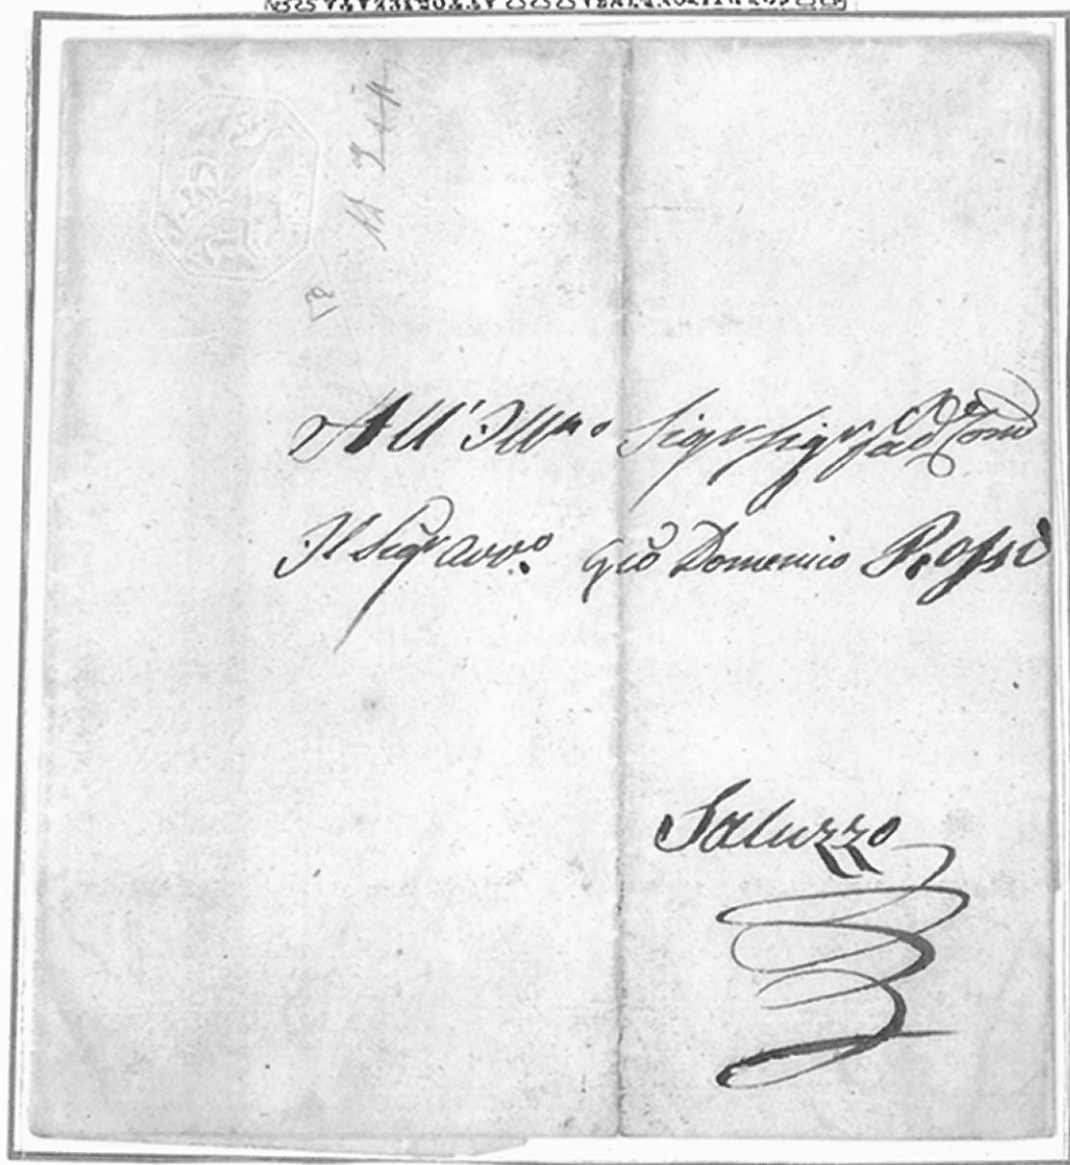 All' Ill.mo Sigr Sigr
Il Sigr Avvo. Gio Domenico Rossi
Saluzzo